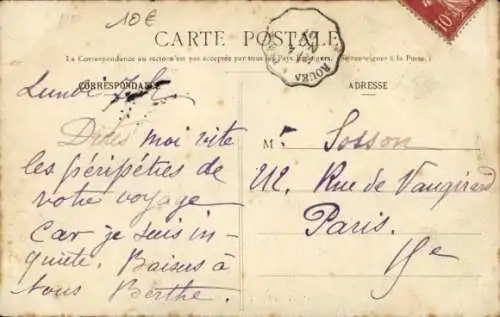 10€
CARTE POSTALE
(La Correspondance au recto n'est pas acceptée par tous les Pays étrangers. Se renseigner à la Poste.)
CORRESPONDANCE
ADRESSE
Lundi
Dites moi vite
les péripéties de
votre voyage
Car je suis in-
quiète. Baisers à
tous Berthe.
Mr Sosson
112, Rue de Vaugirard
Paris.
10